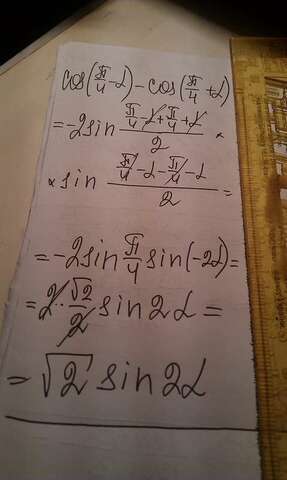 cos(π/4 - α) - cos(π/4 + α)
= -2sin (π/4 - α + π/4 + α)/2 ×
× sin (π/4 - α - π/4 - α)/2 =
= -2sin π/4 sin(-2α) =
= 2 · √2/2 sin 2α =
= √2 sin 2α